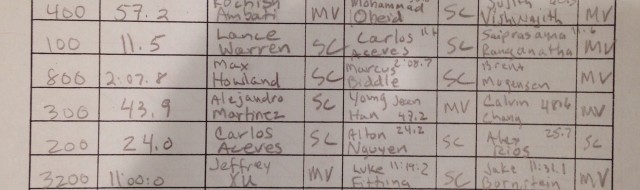 400 57.2 Ambati MV Mohammad Obeid SC Vishwajith MV
100 11.5 Lance Warren SC Carlos Aceves 11.6 SC Saiprasanna Ranganatha 11.6 MV
800 2:07.8 Max Howland SC Marcus Biddle 2:08.7 SC Brent Mogensen MV
300 43.9 Alejandro Martinez SC Young Jean Han 47.2 MV Calvin Chang 48.6 MV
200 24.0 Carlos Aceves SC Alton Nguyen 24.2 SC Alex Rios 25.7 SC
3200 11:00:0 Jeffrey Xu MV Luke Fitting 11:19:2 SC Jake Dornstein MV